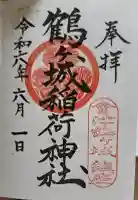 奉拝
鶴ヶ城稲荷神社
令和六年六月一日